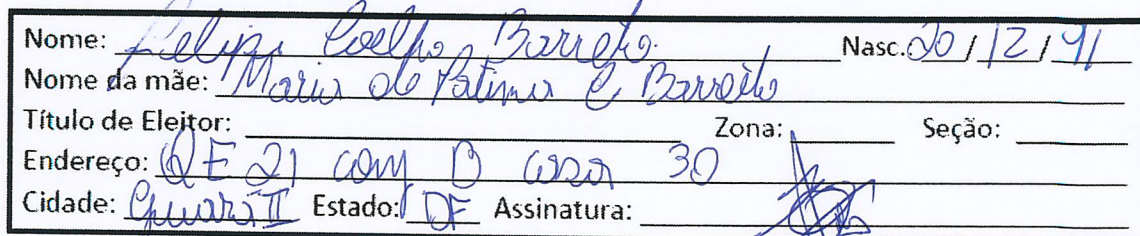 Nome: Felipe Coelho Barreto Nasc. 20/12/91
Nome da mãe: Maria de Fatima C Barreto
Título de Eleitor: Zona: Seção:
Endereço: QE 21 conj D casa 30
Cidade: Guará II Estado: DF Assinatura: